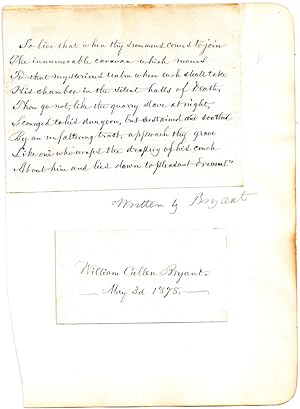 So live that when thy summons comes to join
The innumerable caravan which moves
To that mysterious realm where each shall take
His chamber in the silent halls of Death,
Thou go not, like the quarry slave at night,
Scourged to his dungeon, but sustained and soothed
By an unfaltering trust, approach thy grave
Like one who wraps the drapery of his couch
About him and lies down to pleasant dreams."
Written by Bryant
William Cullen Bryant.
May 3d 1878.